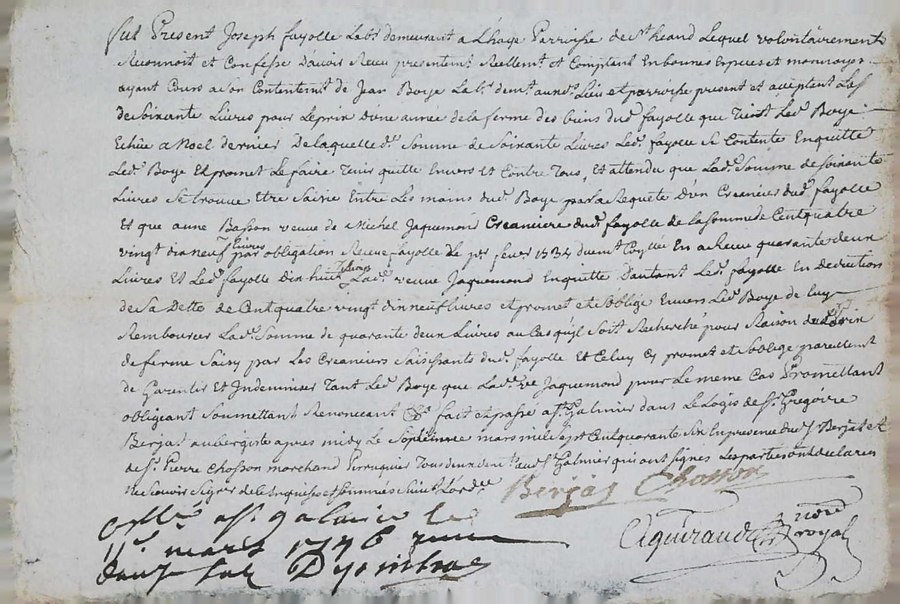 fut Present Joseph fayolle Labr demeurant a Lhaye Parroisse de St heand Lequel volontairement
Reconnoit et Confesse Davoir Receu presentemt Reellemt et Comptent En bonnes Especes et monnoyes
ayant Cours a son Contentemt de Jean Boye Labr demt aud Lieu et parroisse present et aceptent Las
de soixante Livres pour Leprix dune année de la ferme des biens dud fayolle que Tient Led Boye
Echüe a Noel dernier De laquelle de Somme de soixante Livres Led fayolle se Contente Enquitte
Led Boye Et promet Le faire Tenir quitte Envers Et Contre Tous, Et attendu que Lad Somme de soixante
Livres Se trouve Etre Saisie Entre Les mains dud Boye par la Requete D'un Creancier dud fayolle
Et que anne Basson veuve de Michel Jaquemond Creanciere dud fayolle de la somme de Cent quatre
vingt dix neuf Livres par obligation Receue fayolle Le per fevr 1734 En a Receu quarante deux
Livres Et Led fayolle Dix huit Livres Lad veuve Jaquemond Enquitte Dautant Led fayolle En Deduction
de Sa Dette de Cent quatre vingt dix neuf livres et promet et soblige Envers Led Boye de Luy
Rembourcer Lad Somme de quarante deux Livres au Cas quil Soit Recherché pour Raison dud prix
de ferme Saisy par Les Creanciers Saisissants dud fayolle Et Celuy Cy promet et soblige pareillemt
de Garentir Et Indemniser Tant Led Boye que Lad ve Jaquemond pour Le meme Cas Promettant
obligeant Soumettant Renonceant &a fait Et passé a St Galmier dans Le Logis de Sr Gregoire
Berjat aubergiste apres midy Le Septieme mars mil Sept Cent quarante Six En presence dud Sr Berjat et
de Sr Pierre Chosson marchand Perruquier Tous deux demt aud St Galmier qui ont signés Les parties ont declaré
Ne Scavoir Signer de ce Enquises et sommées Suivt Lord
Berjat Chosson
a St galmier le
11e mars 1746
douze sols
Aguiraud no re
royal